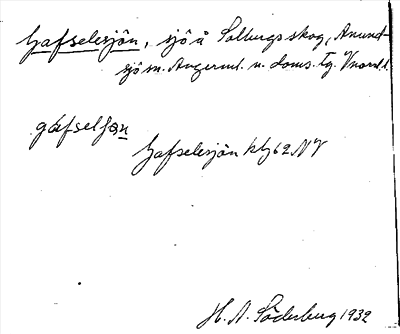 Gafselesjön, sjö å Solbergs skog, Anund-
sjö sn. Ångerml. n. doms. tg. Vnorrl.
gáfselʃǫn
Gafselesjön kbl 62 NV
H. A. Söderberg 1932